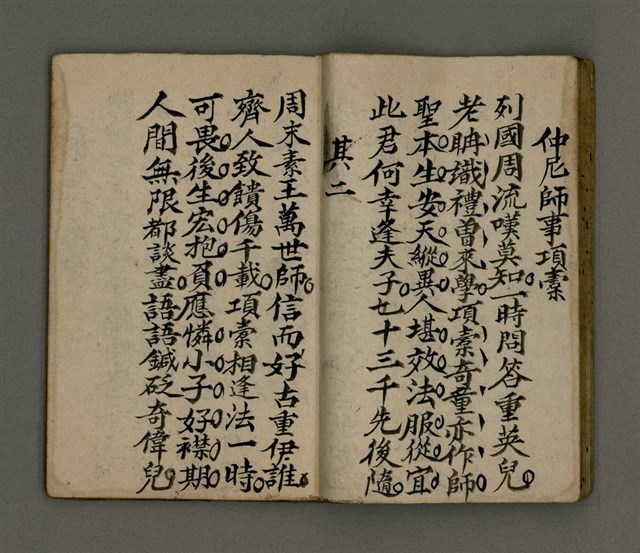 仲尼師事項橐
列國周流嘆莫知。一時問答重英兒。
老聃織禮曽來學。項橐奇童亦作師。
聖本生安天縱異。人堪效法服從宜。
此君何幸逢夫子。七十三千先後隨。
其二
周末素王萬世師。信而好古重伊誰。
齊人致饋傷千載。項橐相逢法一時。
可畏後生宏抱負。應憐小子好襟期。
人間無限都談盡。語語鍼砭奇偉兒。